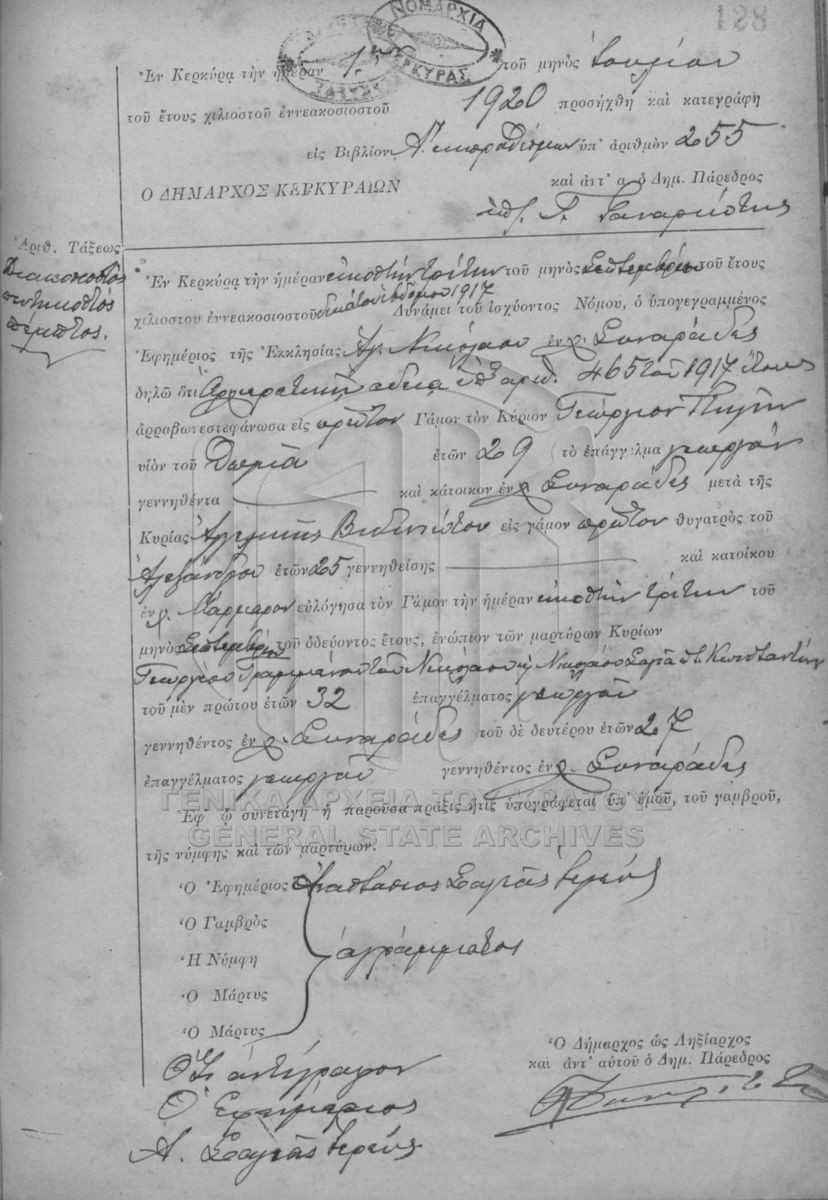 128
ΝΟΜΑΡΧΙΑ
ΚΕΡΚΥΡΑΣ
Ἐν Κερκύρᾳ τὴν ἡμέραν 1ην τοῦ μηνὸς Ἰουλίου
τοῦ ἔτους χιλιοστοῦ ἐννεακοσιοστοῦ 1920 προσήχθη καὶ κατεγράφη
εἰς Βιβλίον Α. ἐκπροθέσμων ὑπ' ἀριθμὸν 255
Ο ΔΗΜΑΡΧΟΣ ΚΕΡΚΥΡΑΙΩΝ καὶ ἀντ' α ὁ Δημ. Πάρεδρος
Ἀριθ. Τάξεως
Διακοσιοστὸς
πεντηκοστὸς
πέμπτος.
Ἐν Κερκύρᾳ τὴν ἡμέραν εἰκοστὴν τρίτην τοῦ μηνὸς Σεπτεμβρίου τοῦ ἔτους
χιλιοστοῦ ἐννεακοσιοστοῦ δεκάτου ἑβδόμου 1917 Δυνάμει τοῦ ἰσχύοντος Νόμου, ὁ ὑπογεγραμμένος
Ἐφημέριος τῆς Ἐκκλησίας Ἁγ. Νικολάου ἐν χ. Συναράδες
δηλῶ ὅτι Ἀρχιερατικῇ ἀδείᾳ ὑπ' ἀριθ. 465 τοῦ 1917 ἔτους
ἀρραβωνεστεφάνωσα εἰς πρῶτον Γάμον τὸν Κύριον Γεώργιον
υἱὸν τοῦ Θωμᾶ ἐτῶν 29 τὸ ἐπάγγελμα γεωργὸν
γεννηθέντα καὶ κάτοικον ἐν χ. Συναράδες μετὰ τῆς
Κυρίας Ἀγγελικῆς εἰς γάμον πρῶτον θυγατρὸς τοῦ
Ἀλεξάνδρου ἐτῶν 25 γεννηθείσης καὶ κατοίκου
ἐν χ. Μάρμαρον εὐλόγησα τὸν Γάμον τὴν ἡμέραν εἰκοστὴν τρίτην τοῦ
μηνὸς Σεπτεμβρίου τοῦ ὁδεύοντος ἔτους, ἐνώπιον τῶν μαρτύρων Κυρίων
Γεωργίου Γραμμένου τοῦ Νικολάου ἢ Νικολάου Σαγιᾶ π. Κωνσταντίνου
τοῦ μὲν πρώτου ἐτῶν 32 ἐπαγγέλματος γεωργοῦ
γεννηθέντος ἐν χ. Συναράδες τοῦ δὲ δευτέρου ἐτῶν 27
ἐπαγγέλματος γεωργοῦ γεννηθέντος ἐν χ. Συναράδες
ΓΕΝΙΚΑ ΑΡΧΕΙΑ ΤΟΥ ΚΡΑΤΟΥΣ
Ἐφ' ᾧ συνετάγη ἡ παροῦσα πρᾶξις ἥτις ὑπογράφεται ὑπ' ἐμοῦ, τοῦ γαμβροῦ,
GENERAL STATE ARCHIVES
τῆς νύμφης καὶ τῶν μαρτύρων.
Ὁ Ἐφημέριος Ἀναστάσιος Σαγιᾶς ἱερεύς
Ὁ Γαμβρὸς
Ἡ Νύμφη ἀγράμματος
Ὁ Μάρτυς
Ὁ Μάρτυς
Ὁ Δήμαρχος ὡς Ληξίαρχος
καὶ ἀντ' αὐτοῦ ὁ Δημ. Πάρεδρος
ἀντίγραφον
Ὁ Ἐφημέριος
Α. Σαγιᾶς Ἱερεύς